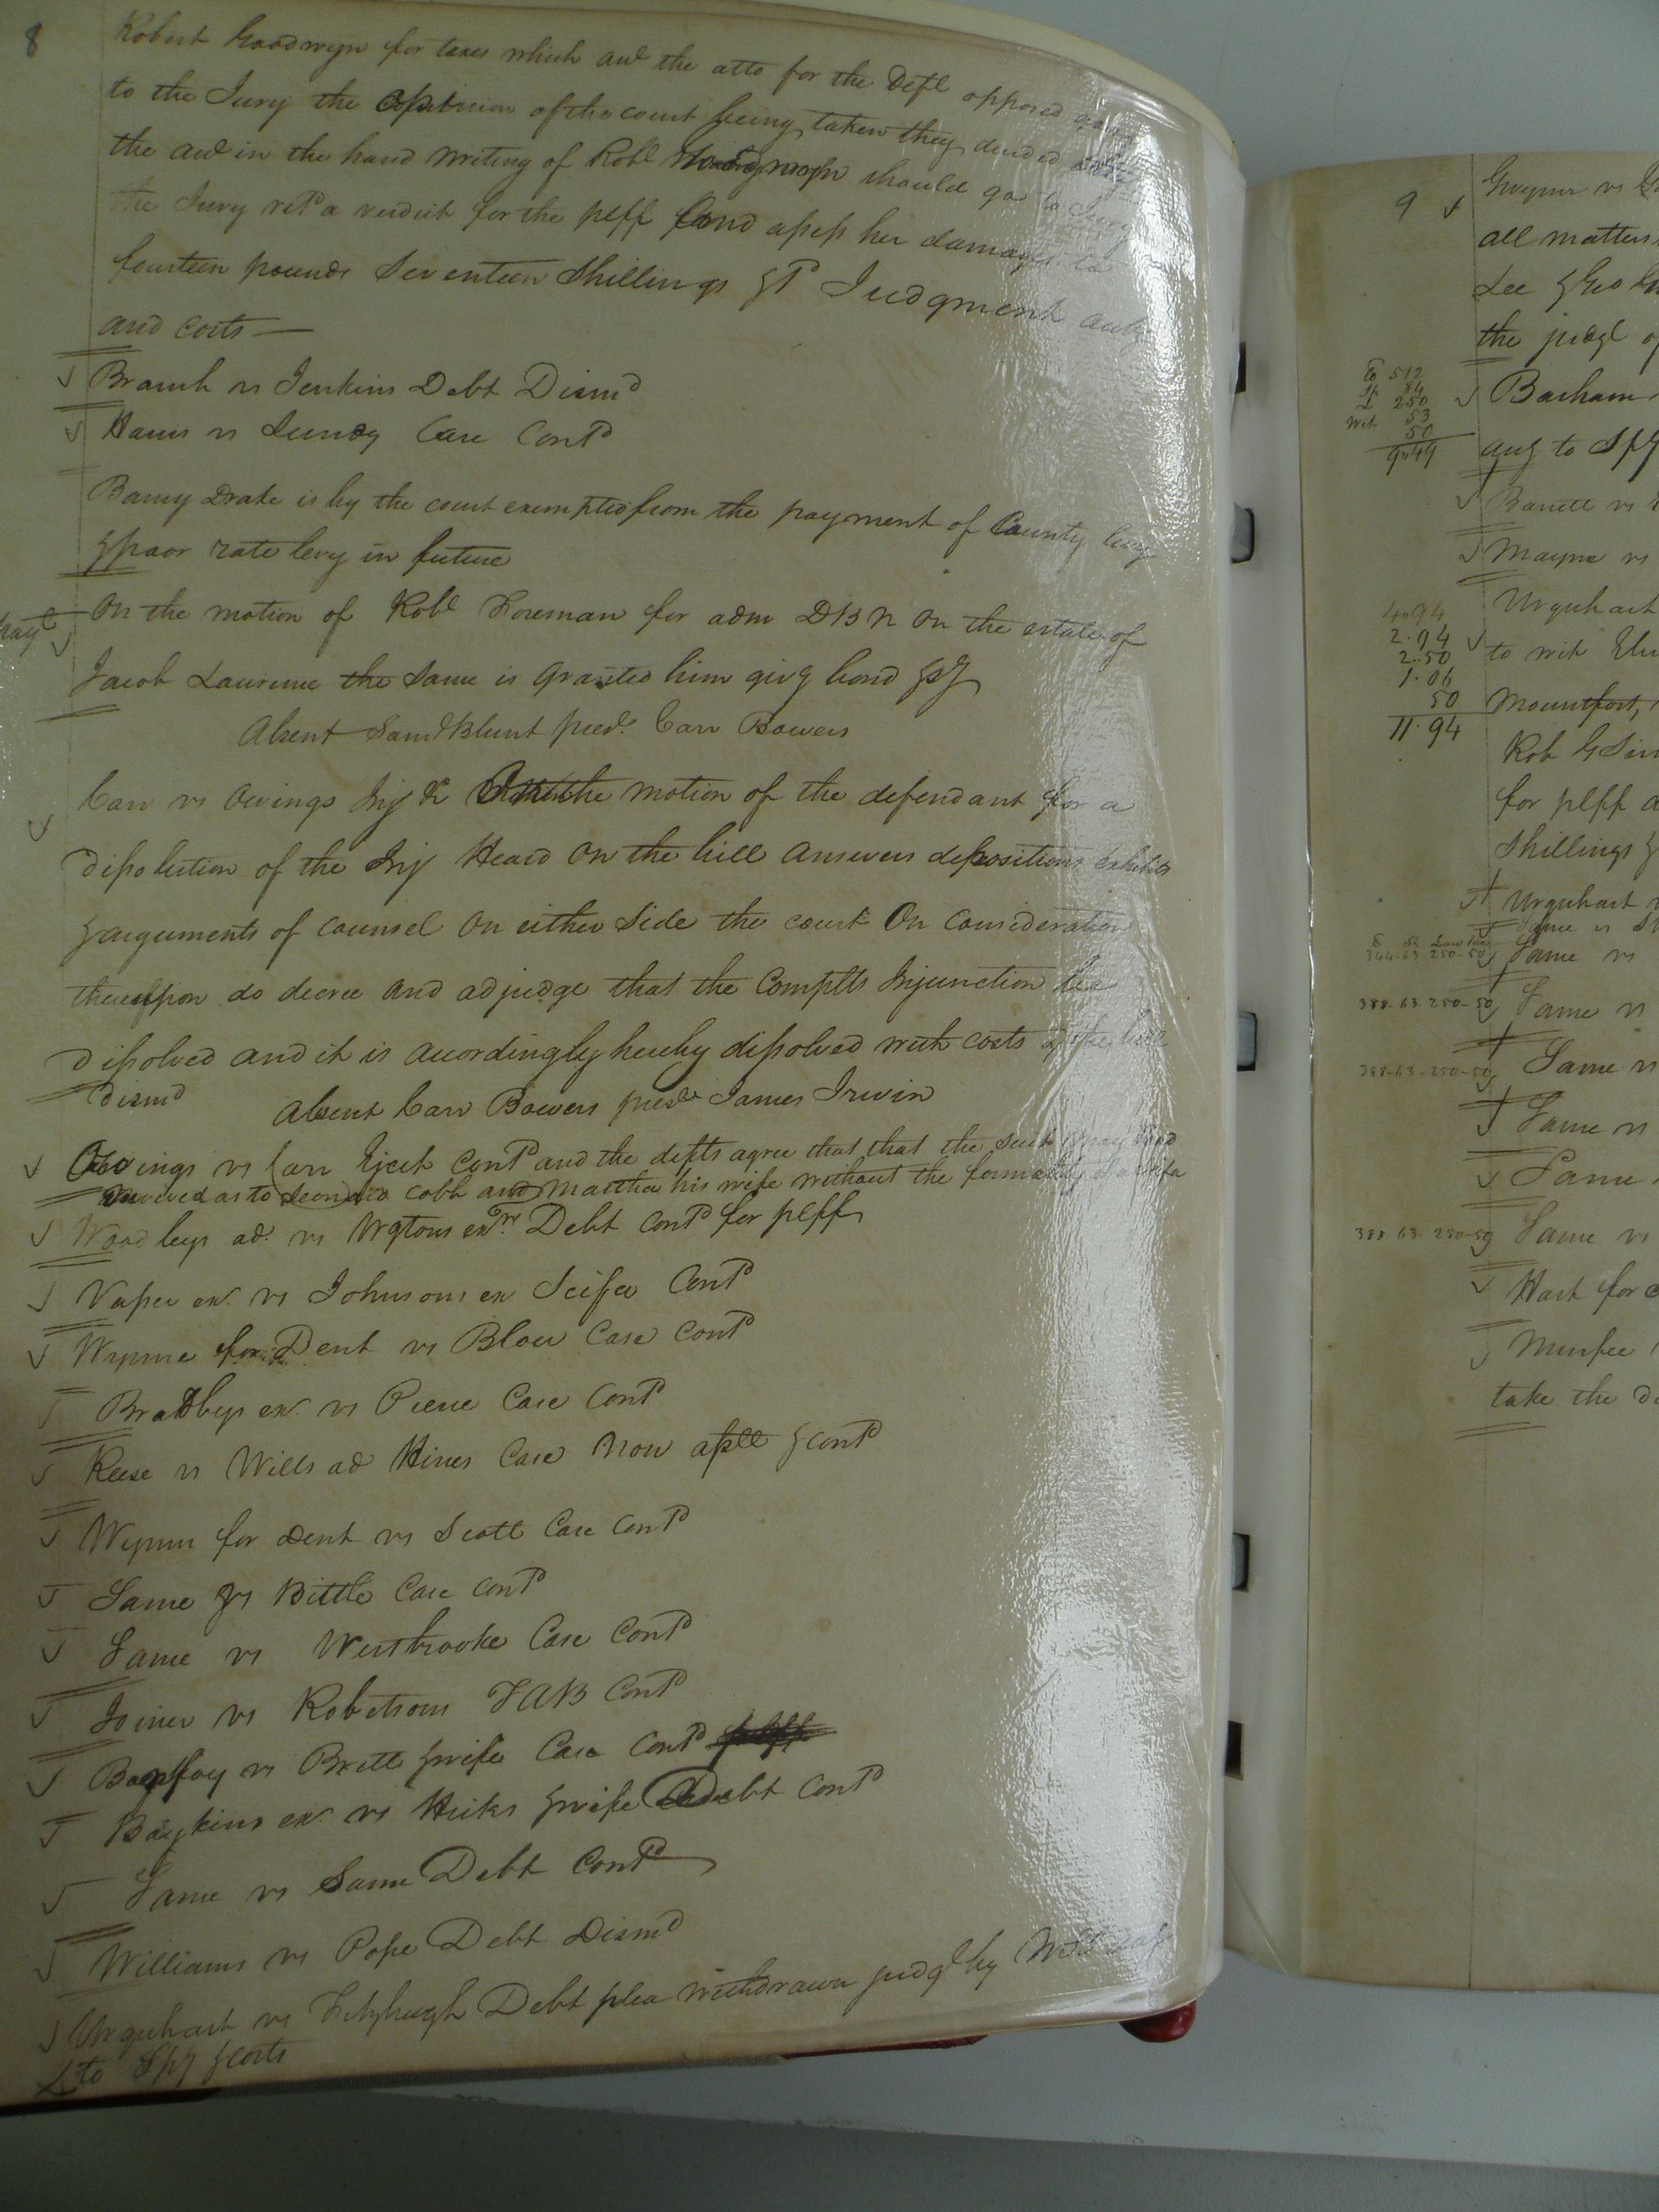 8
Robert Goodwyn for taxes which acct the atto for the Deft opposed going
to the Jury the Opinion of the court being taken they decided that
the acct in the hand writing of Robt Goodwyn should go to Jury
the Jury retd a verdict for the peff and assess her damages to
fourteen pounds Seventeen Shillings &c Judgment
and costs —
Branch vs Jenkins Debt Dismd
Harris vs Lundy Case Contd
Barny Drake is by the court exempted from the payment of County levy
& poor rate levy in future
On the motion of Robt Foreman for adm DBN on the estate of
Jacob Laurence the same is granted him givg bond &c
Absent Saml Blunt presd. Carr Bowers
Carr vs Owings Inj & On the motion of the defendant for a
dissolution of the Inj Heard On the bill answers depositions exhibits
& arguments of counsel On either side the court On consideration
thereupon do decree and adjudge that the Complts Injunction be
dissolved and it is accordingly hereby dissolved with costs & the bill
dismd
Absent Carr Bowers presd James Irwin
Owings vs Carr Eject Contd and the defts agree that that the suit may stand
revived as to Leonard Cobb and Martha his wife without the formality of a scifa
Woodleys ad. vs Urqtons exr. Debt Contd for peff
Vaser ex. vs Johnsons ex Scifa Contd
Wynne for Dent vs Blow Case Contd
Bradbys ex. vs Pierce Case Contd
Reese vs Wills ad Hines Case Non asslt & Contd
Wynn for Dent vs Scott Case Contd
Same vs Bittle Case Contd
Same vs Westbrooke Case Contd
Joiner vs Robetsons TAB Contd
vs Britt & wife Case Contd
Boykins ex. vs Hicks & wife Debt Contd
Same vs Same Debt Contd
Williams vs Pope Debt Dismd
Urquhart vs Fitzhugh Debt plea withdrawn judgt by
to Spy & costs
9
Gwynn vs
all matters
Lee & Geo
the judgt of
Barham
512
84
250
Wit 53
50
9.49
aug to Spy
Barrett vs
Mayne vs
Urquhart
4.94
2.94
2.50
1.06
50
11.94
to wit
Mountfort,
Rob G Sim
for peff a
Shillings &
Urquhart v
Same vs
344.63.250-50 Same vs
388.63.250-50 Same vs
388-63-250-50 Same vs
Same vs
Same
388 63 250-50 Same vs
Hart for
Menfee
take the de